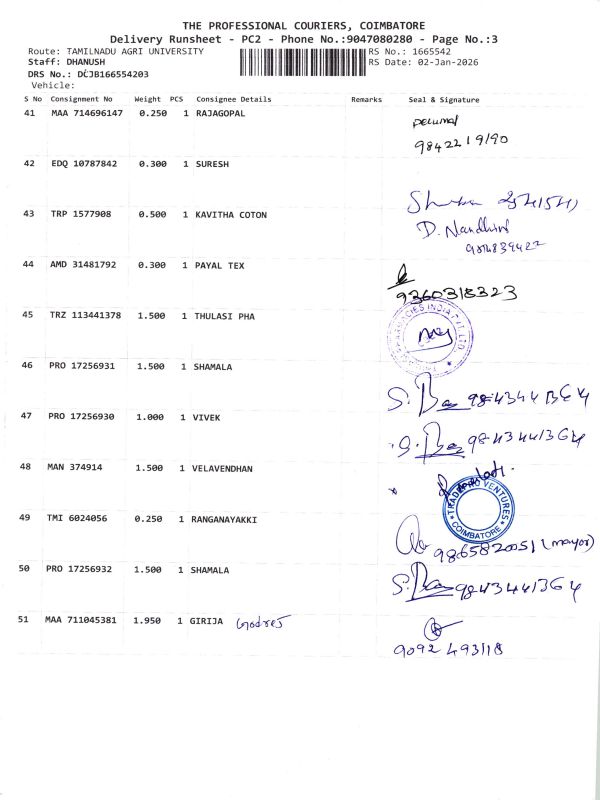 THE PROFESSIONAL COURIERS, COIMBATORE
Delivery Runsheet - PC2 - Phone No.:9047080280 - Page No.:3
Route: TAMILNADU AGRI UNIVERSITY RS No.: 1665542
Staff: DHANUSH RS Date: 02-Jan-2026
DRS No.: DCJB166554203
Vehicle:
S No Consignment No Weight PCS Consignee Details Remarks Seal & Signature
41 MAA 714696147 0.250 1 RAJAGOPAL
perumal
9842219190
42 EDQ 10787842 0.300 1 SURESH
43 TRP 1577908 0.500 1 KAVITHA COTON
D. Nandhini
44 AMD 31481792 0.300 1 PAYAL TEX
9360318323
45 TRZ 113441378 1.500 1 THULASI PHA
46 PRO 17256931 1.500 1 SHAMALA
9843441364
47 PRO 17256930 1.000 1 VIVEK
9843441364
48 MAN 374914 1.500 1 VELAVENDHAN
VENTURES
COIMBATORE
49 TMI 6024056 0.250 1 RANGANAYAKKI
9865820051 (mayor)
50 PRO 17256932 1.500 1 SHAMALA
9843441364
51 MAA 711045381 1.950 1 GIRIJA Godrej
9092493118